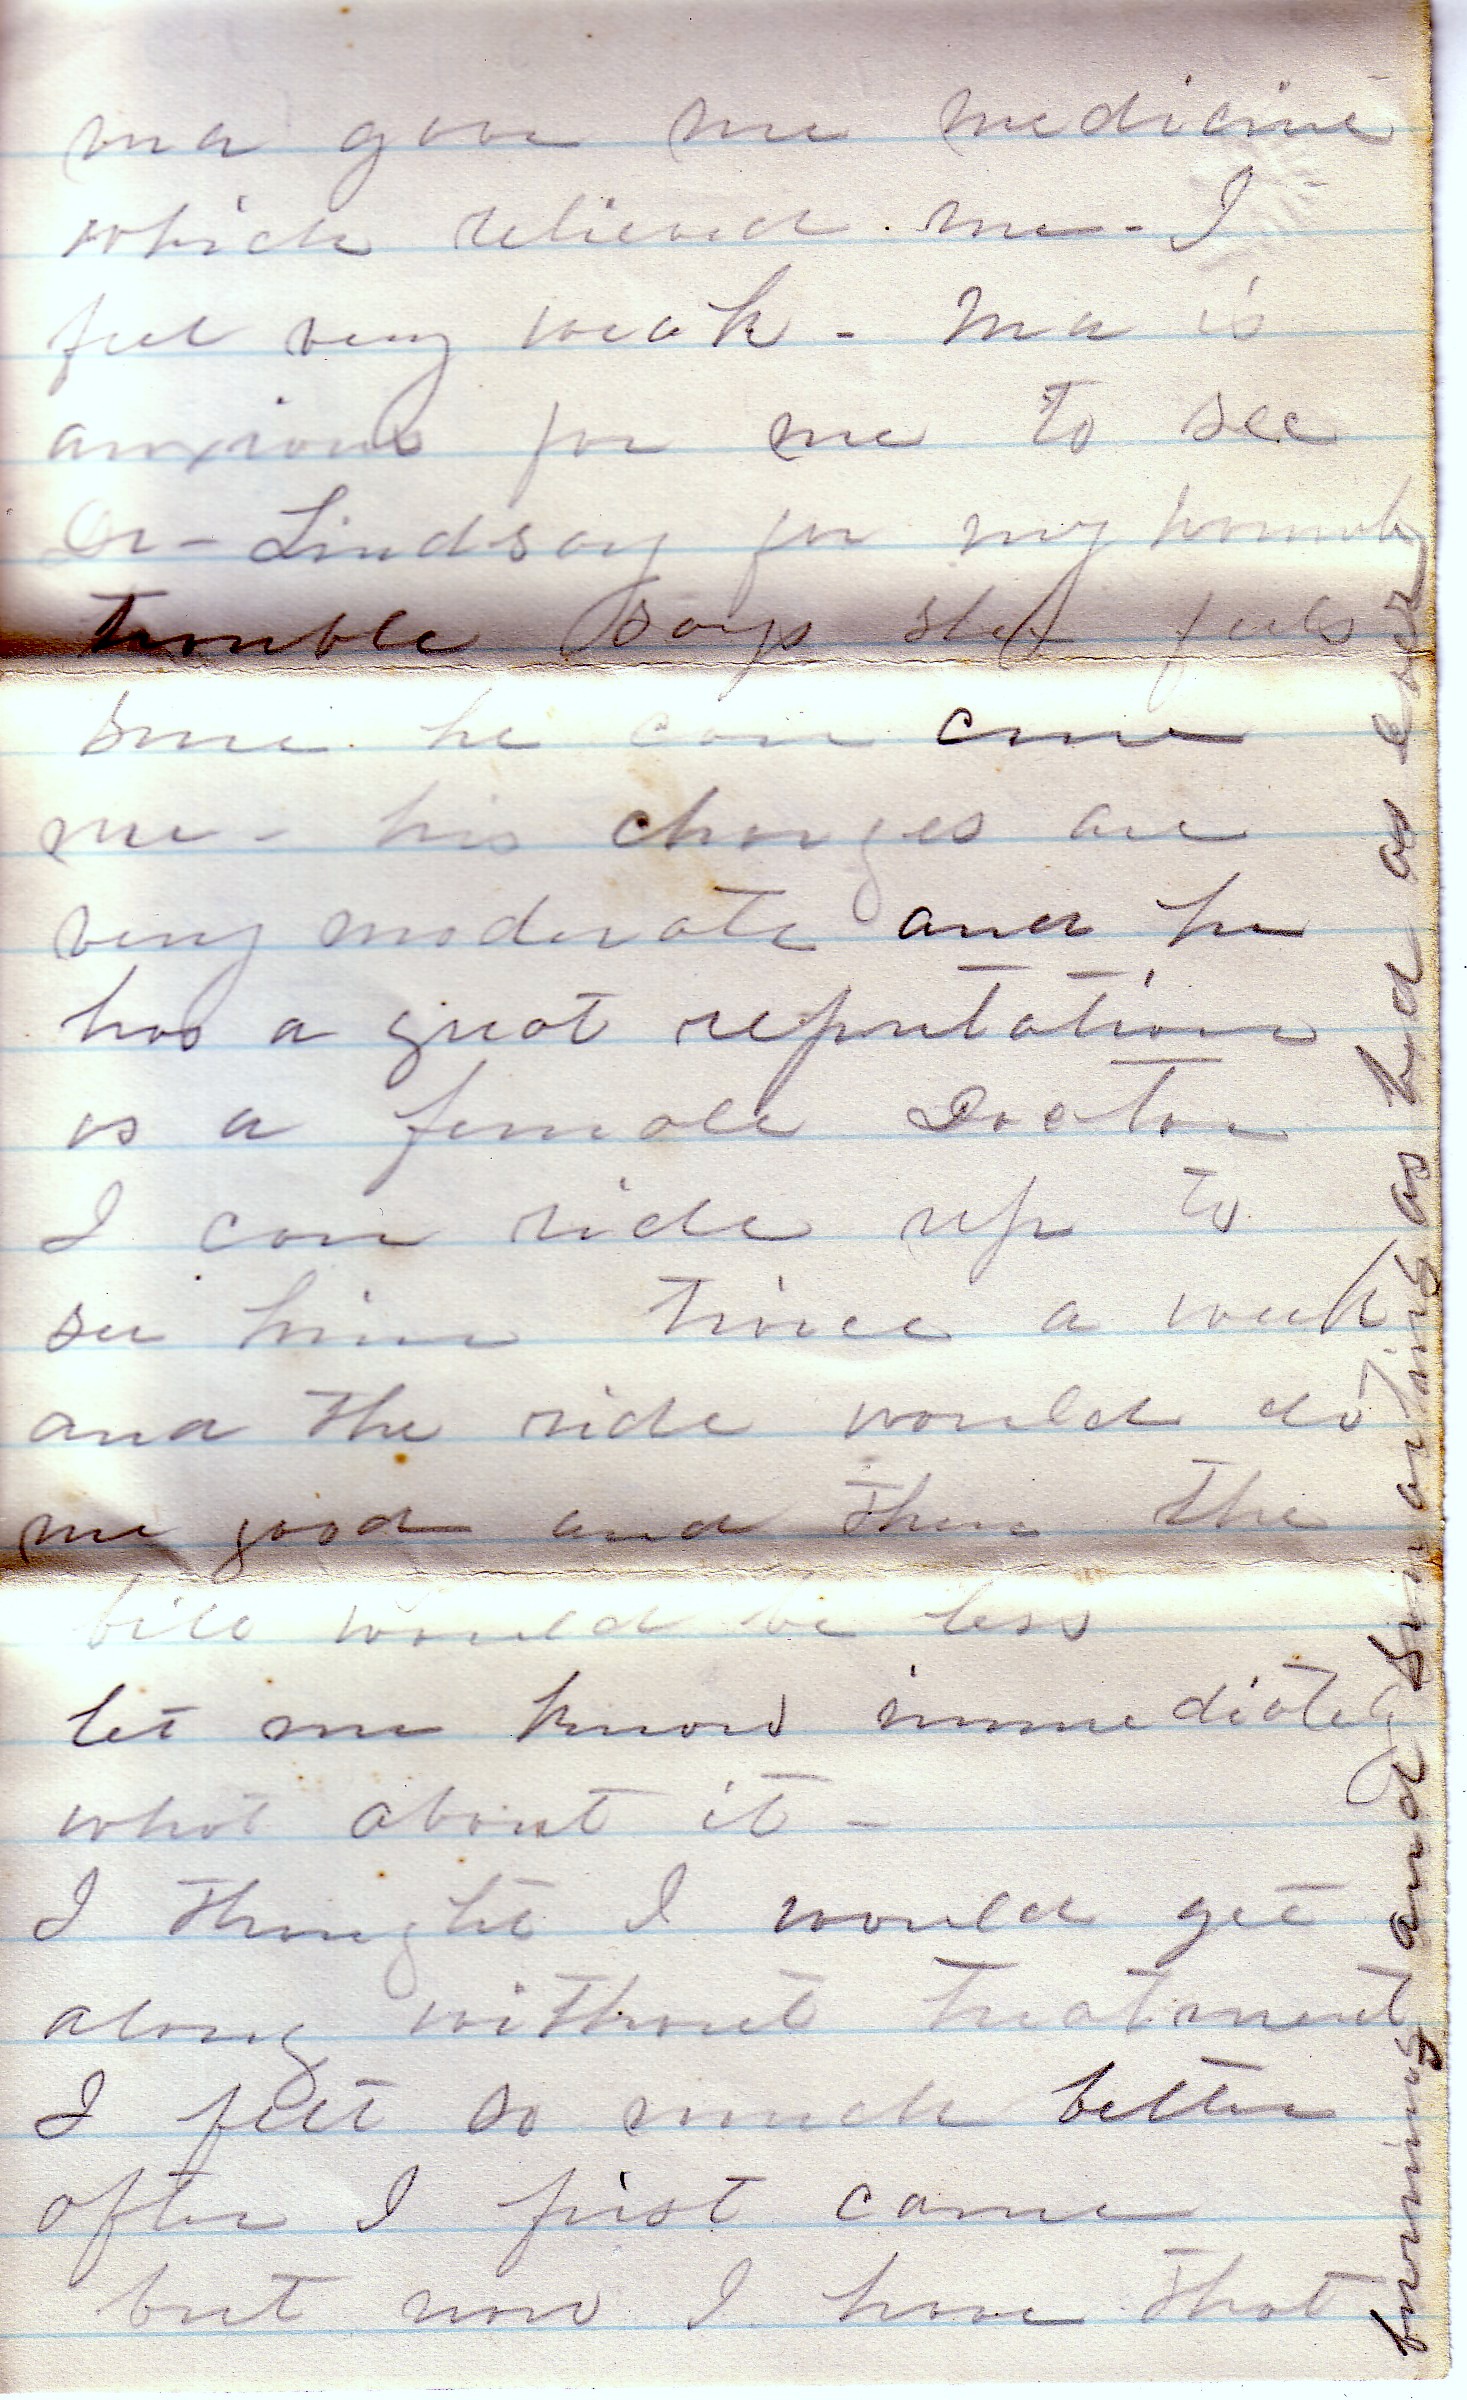 ma gave me medicine
which relieved me - I
feel very weak - Ma is
anxious for me to see
Dr - Lindsay for my womb
trouble says she feels
sure he can cure
me - his charges are
very moderate and he
has a great reputation
as a female Doctor
I can ride up to
see him twice a week
and the ride would do
me good and then the
bill would be less
let me know immediately
what about it -
I thought I would get
along without treatment
I felt so much better
after I first came
but now I have that
burning and smarting as bad as ever